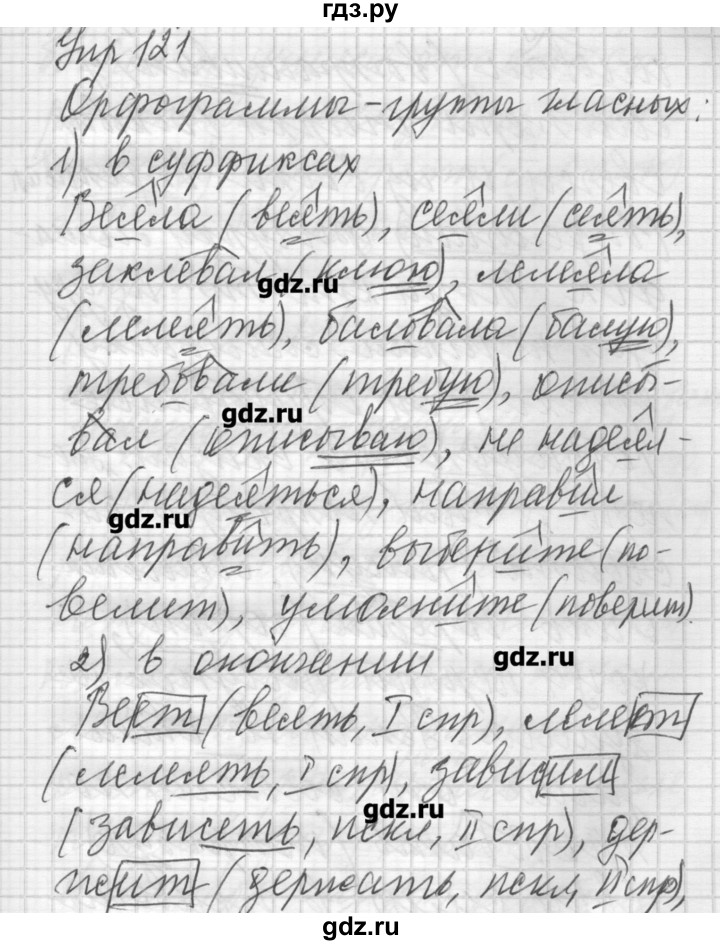 гдз.ру
Упр 121
Орфограммы-группы гласных:
1) в суффиксах
Веяла (веять), сеяли (сеять),
заклевал (клюю), лелеяла
gdz.ru
(лелеять), баловала (балую),
требовали (требую), описы-
gdz.ru
вал (описываю), не надеял-
ся (надеяться), направил
gdz.ru
(направить), выбените (по-
велит), умолните (поверит).
2) в окончании
gdz.ru
Веет (веять, I спр), лелеет
(лелеять, I спр), зависим
gdz.ru
(зависеть, искл, II спр), дер-
жит (держать, искл, II спр),
gdz.ru